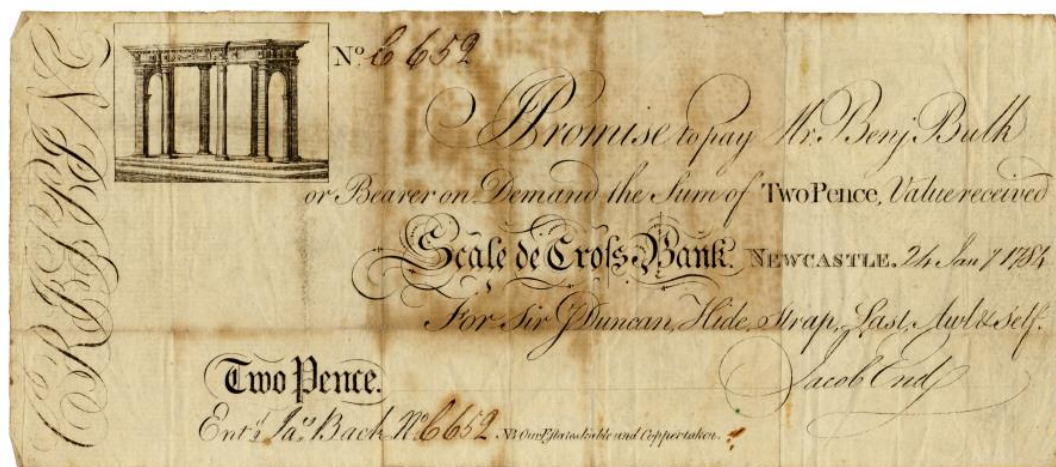 No. C 652
I Promise to pay Mr. Benj Bulk
or Bearer on Demand the Sum of Two Pence, Value received
Scale de Croſs Bank. NEWCASTLE. 24 Jany 1784
For Sir J Duncan, Hide, Strap, Last, Awl & Self.
Jacob End
Two Pence.
Ent'd Jas. Back No. C652 NB Our Estates liable and Copper taken.